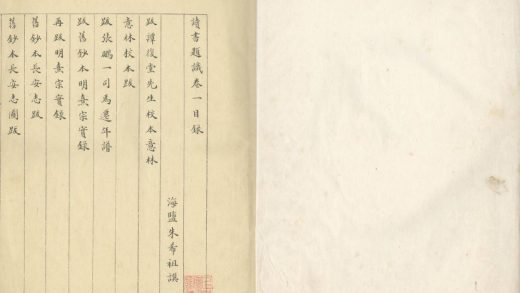 讀書題識卷一目錄
海鹽朱希祖譔
跋譚復堂先生校本意林
意林校本跋
跋張鵬一司馬遷年譜
跋舊鈔本明熹宗實錄
再跋明熹宗實錄
舊鈔本長安志跋
舊鈔本長安志圖跋